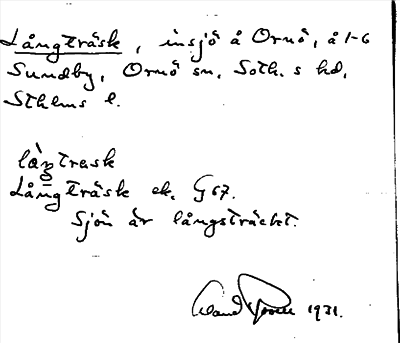 Långträsk, insjö å Ornö, å 1-6
Sundby, Ornö sn, Soth. s hd,
Sthlms l.
långtrask
Långträsk ek. G 67.
Sjön är långsträckt.
1931.